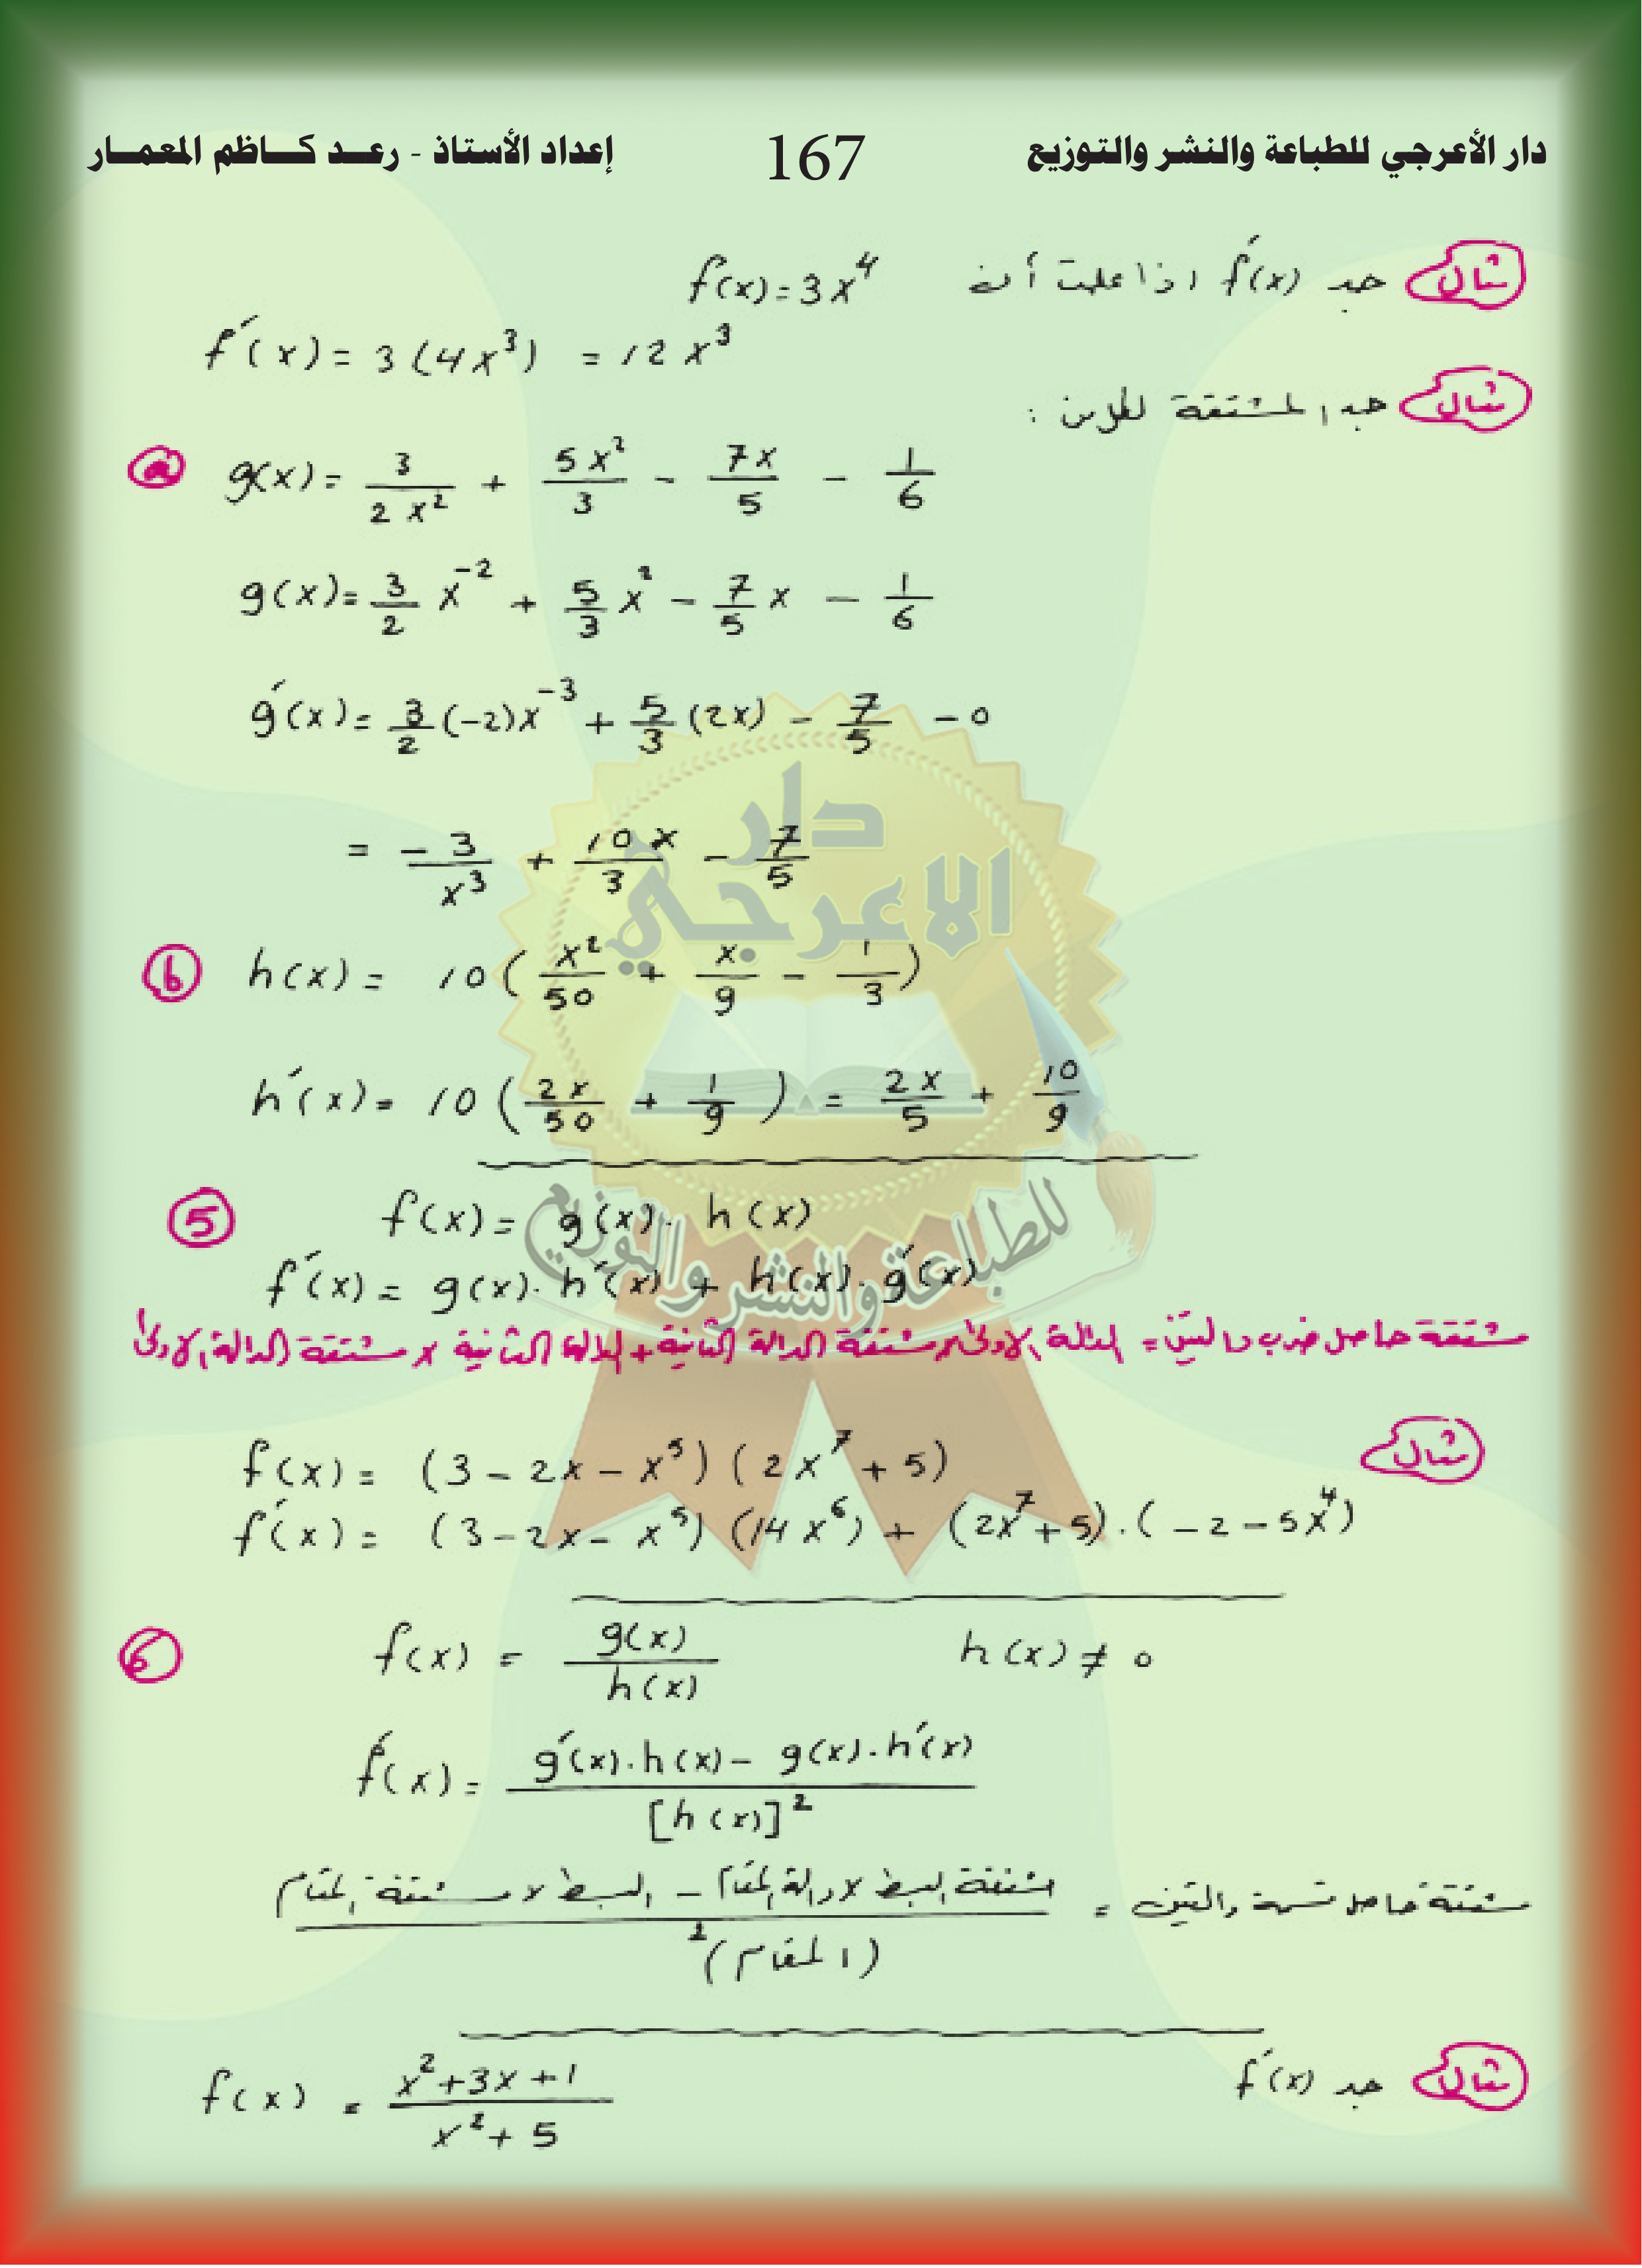 دار الأعرجي للطباعة والنشر والتوزيع 167 إعداد الأستاذ - رعــد كــاظم المعمــار
مثال جد f′(x) اذا علمت أن f(x) = 3x⁴
f′(x) = 3(4x³) = 12x³
مثال جد المشتقة لكل من :
ⓐ g(x) = 3/(2x²) + 5x²/3 - 7x/5 - 1/6
g(x) = 3/2 x⁻² + 5/3 x² - 7/5 x - 1/6
g′(x) = 3/2 (-2)x⁻³ + 5/3 (2x) - 7/5 - 0
= -3/x³ + 10x/3 - 7/5
ⓑ h(x) = 10(x²/50 + x/9 - 1/3)
h′(x) = 10(2x/50 + 1/9) = 2x/5 + 10/9
⑤ f(x) = g(x) . h(x)
f′(x) = g(x) . h′(x) + h(x) . g′(x)
مشتقة حاصل ضرب دالتين = الدالة الاولى × مشتقة الدالة الثانية + الدالة الثانية × مشتقة الدالة الاولى
مثال
f(x) = (3 - 2x - x⁵)(2x⁷ + 5)
f′(x) = (3 - 2x - x⁵)(14x⁶) + (2x⁷ + 5) . (-2 - 5x⁴)
⑥ f(x) = g(x)/h(x) h(x) ≠ 0
f′(x) = (g′(x) . h(x) - g(x) . h′(x))/[h(x)]²
مشتقة حاصل قسمة دالتين = مشتقة البسط × دالة المقام - البسط × مشتقة المقام
(المقام)²
مثال جد f′(x)
f(x) = (x² + 3x + 1)/(x² + 5)
دار
الاعرجي
للطباعة والنشر والتوزيع